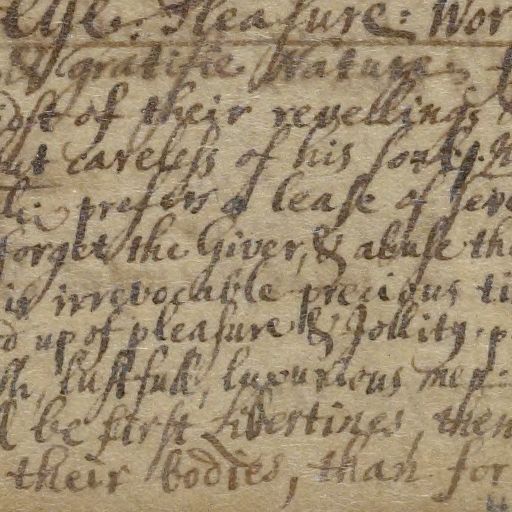 Pleasure: Wor
& gratifie Nature;
idst of their revellings
but careless of his soul.
prefers a lease of
forget the Giver, & abuse the
irrevocable precious ti
d up of pleasure & Jollity.
lustfull, luxurious men:
l be first libertines, then
their bodies, than for